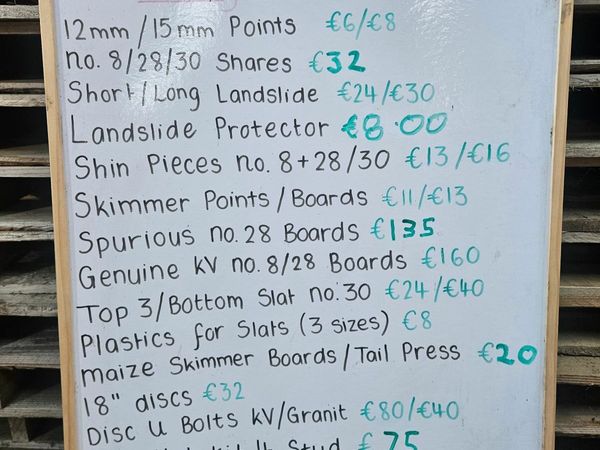 12mm/15mm Points €6/€8
no. 8/28/30 Shares €32
Short/Long Landslide €24/€30
Landslide Protector €8.00
Shin Pieces no. 8+28/30 €13/€16
Skimmer Points/Boards €11/€13
Spurious no. 28 Boards €135
Genuine KV no. 8/28 Boards €160
Top 3/Bottom Slat no: 30 €24/€40
Plastics for Slats (3 sizes) €8
maize Skimmer Boards/Tail Press €20
18" discs €32
Disc U Bolts KV/Granit €80/€40
Stud £75